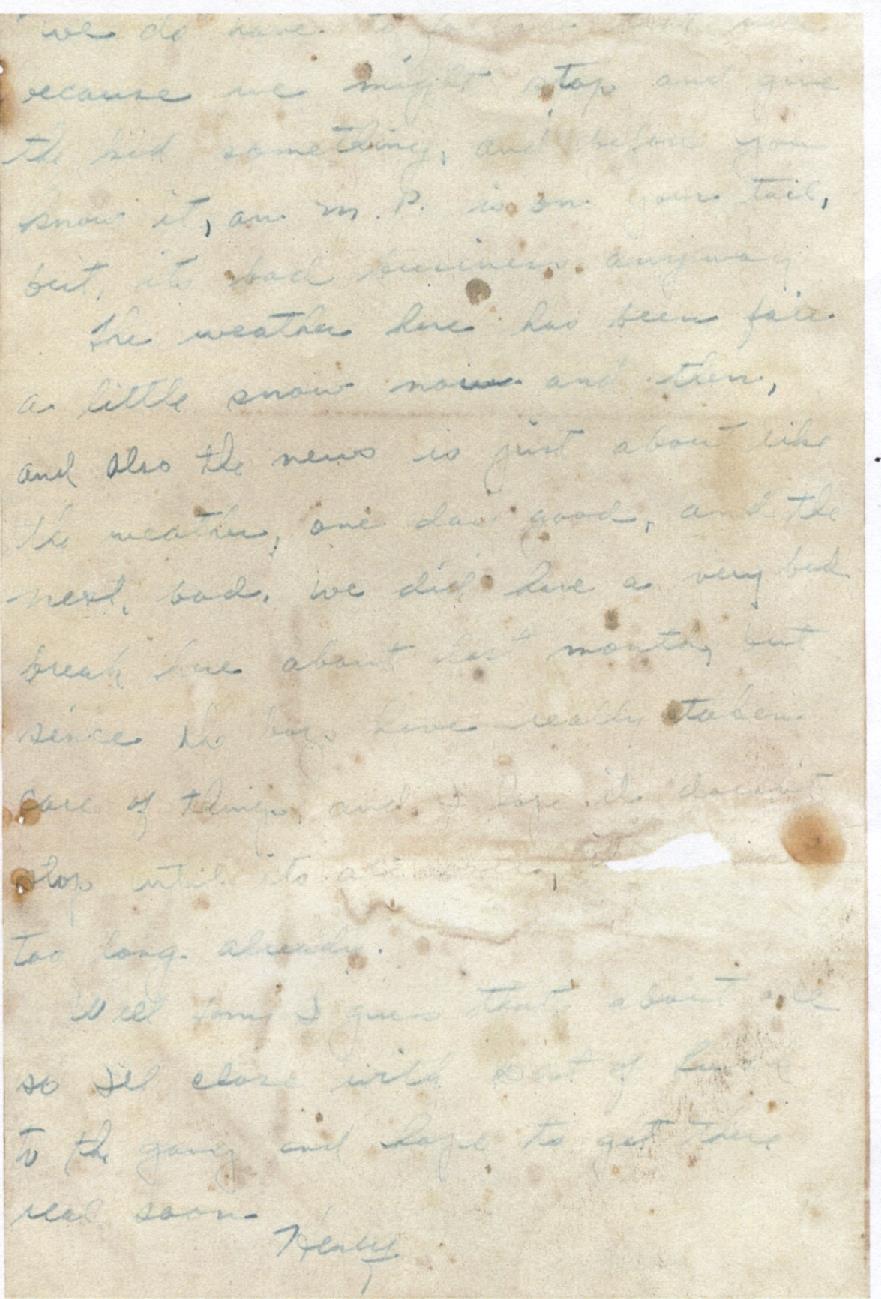 we do have to
because we might stop and give
the kid something, and before you
know it, an M.P. is on your tail,
but, its bad business anyway
The weather here has been fair
a little snow now and then,
and also the news is just about like
the weather, one day good, and the
next, bad. We did have a very bad
break here about last month, but
since the boys have really taken
care of things and I hope it doesn't
stop until its all
too long already.
Well I guess that about all
so I'll close with best of luck
to the gang and hope to get there
real soon
Henry